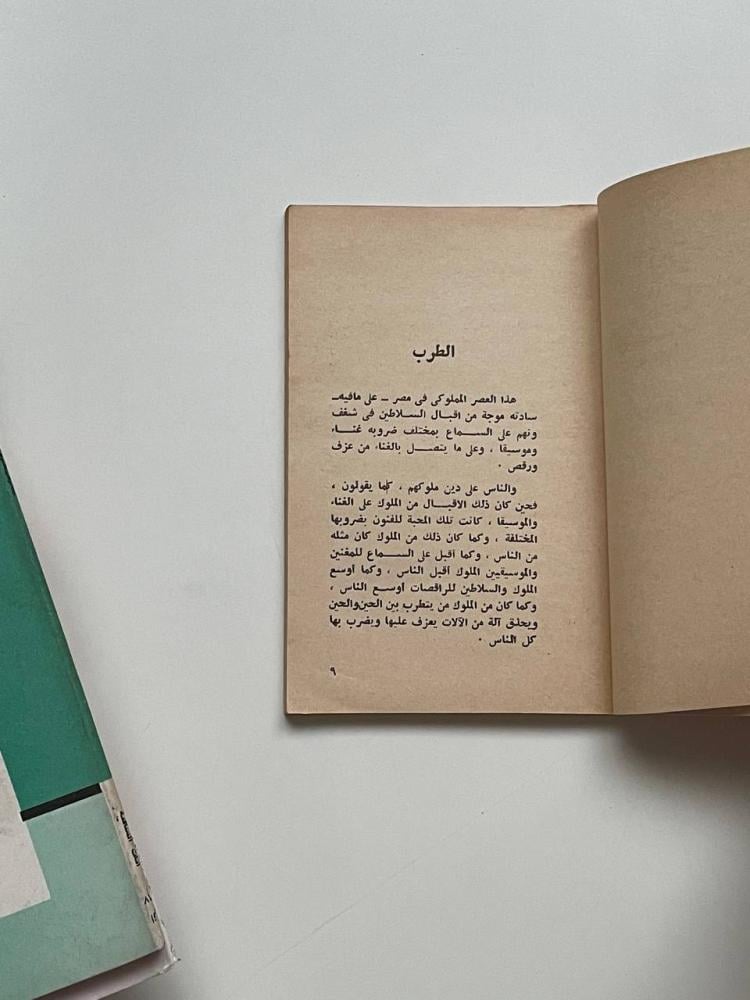 الطرب
هذا العصر المملوكى فى مصر ـ على مافيه ـ
سادته موجة من اقبال السلاطين فى شغف
ونهم على الســـماع بمختلف ضروبه غنــاء
وموسيقا ، وعلى ما يتصـــل بالغناء من عزف
ورقص ٠
والناس على دين ملوكهم ، كما يقولون ،
فحين كان ذلك الاقبـــال من الملوك على الغناء
والموسيقا ، كانت تلك المحبة للفنون بضروبها
المختلفة ، وكما كان ذلك من الملوك كان مثله
من الناس ، وكما أقبل على الســـماع للمغنين
والموسيقيين الملوك أقبل الناس ، وكما أوسع
الملوك والسلاطين للراقصات أوســـع الناس ،
وكما كان من الملوك من يتطرب بين الحين والحين
ويحلق آلة من الآلات يعزف عليها ويضرب بها
كل الناس ٠
٩